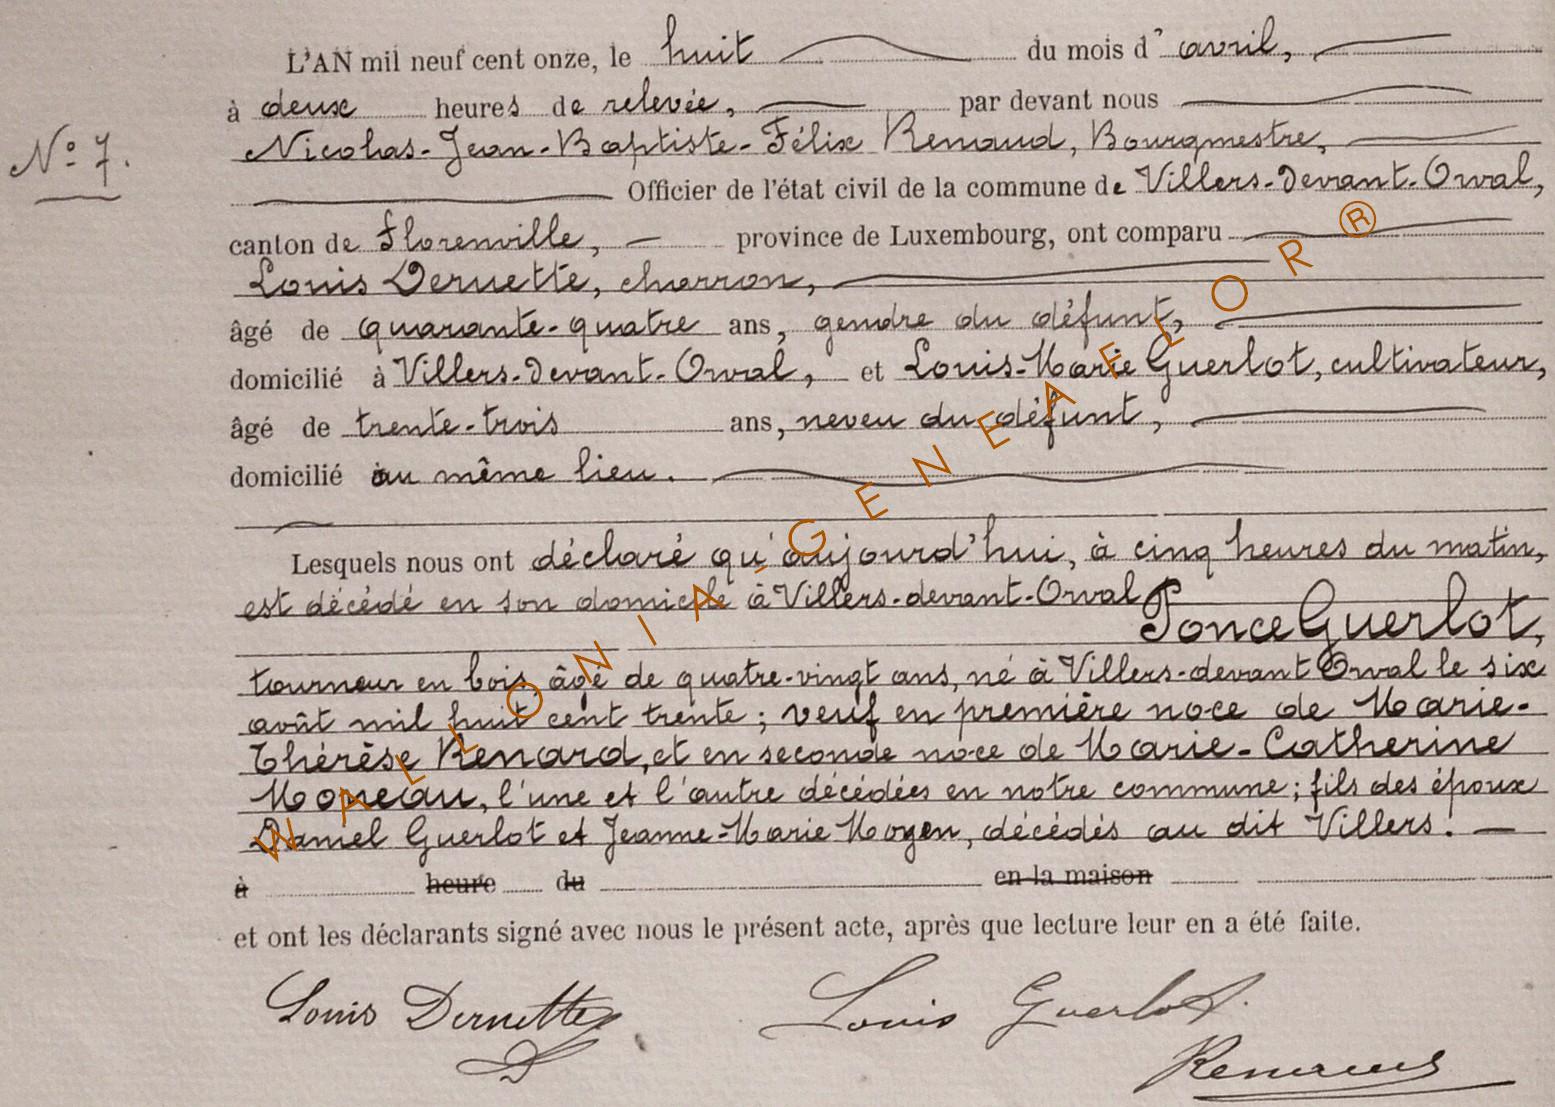 L'AN mil neuf cent onze, le huit du mois d' avril,
à deux heures de relevée, par devant nous
N° 7.
Nicolas-Jean-Baptiste-Félix Renaud, Bourgmestre,
Officier de l'état civil de la commune de Villers-devant-Orval,
canton de Florenville, province de Luxembourg, ont comparu
Louis Dernette, charron,
âgé de quarante-quatre ans, gendre du défunt,
domicilié à Villers-devant-Orval, et Louis-Marie Guerlot, cultivateur,
âgé de trente-trois ans, neveu du défunt,
domicilié au même lieu.
Lesquels nous ont déclaré qu'aujourd'hui, à cinq heures du matin,
est décédé en son domicile à Villers-devant-Orval
Ponce Guerlot,
tourneur en bois, âgé de quatre-vingt ans, né à Villers-devant Orval le six
août mil huit cent trente ; veuf en première noce de Marie-
Thérèse Renard, et en seconde noce de Marie-Catherine
Moneau, l'une et l'autre décédées en notre commune ; fils des époux
Daniel Guerlot et Jeanne-Marie Moyen, décédés au dit Villers. —
à heure du en la maison
et ont les déclarants signé avec nous le présent acte, après que lecture leur en a été faite.
Louis Dernette
D
Louis Guerlot
Renaud
WALLONIA-GENEAFLOR®